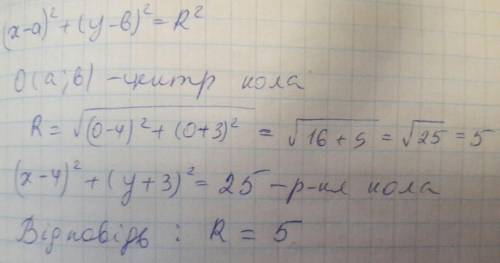 (x-a)² + (y-b)² = R²
O(a; b) - центр кола
R = √((0-4)² + (0+3)²) = √(16 + 9) = √25 = 5
(x-4)² + (y+3)² = 25 - р-ня кола
Відповідь : R = 5